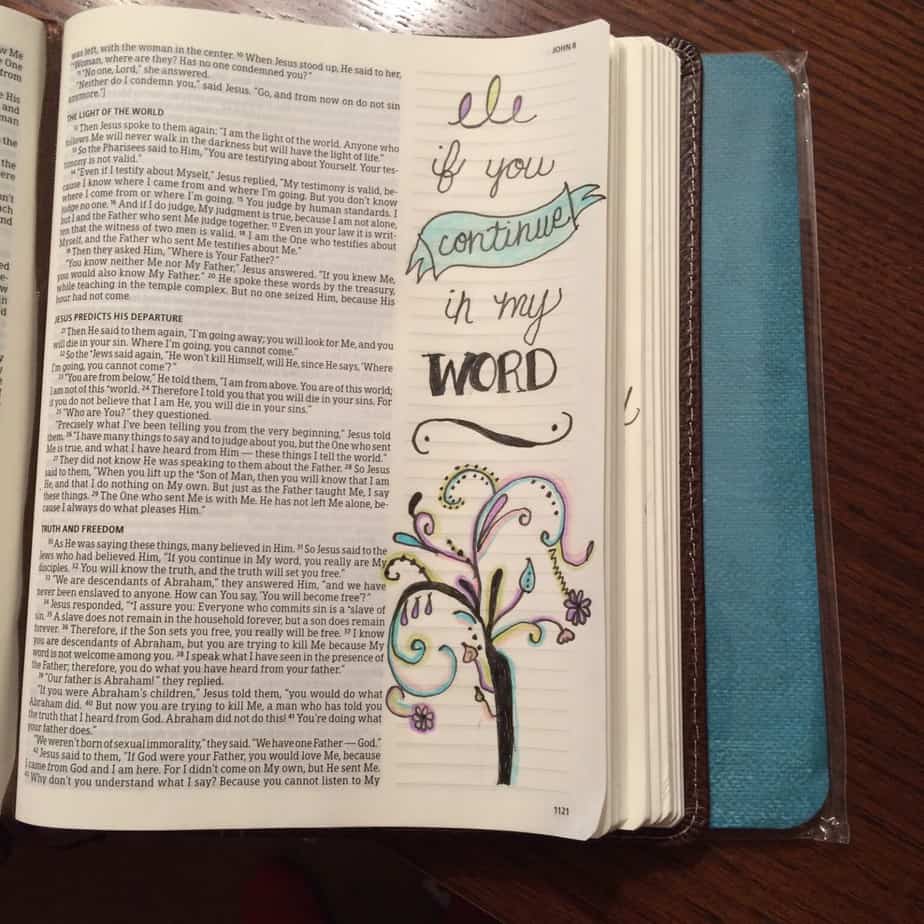 JOHN 8
was left, with the woman in the center. 10 When Jesus stood up, He said to her,
"Woman, where are they? Has no one condemned you?"
11 "No one, Lord," she answered.
"Neither do I condemn you," said Jesus. "Go, and from now on do not sin
anymore."]
THE LIGHT OF THE WORLD
12 Then Jesus spoke to them again: "I am the light of the world. Anyone who
follows Me will never walk in the darkness but will have the light of life."
13 So the Pharisees said to Him, "You are testifying about Yourself. Your tes-
timony is not valid."
14 "Even if I testify about Myself," Jesus replied, "My testimony is valid, be-
cause I know where I came from and where I'm going. But you don't know
where I come from or where I'm going. 15 You judge by human standards. I
judge no one. 16 And if I do judge, My judgment is true, because I am not alone,
but I and the Father who sent Me judge together. 17 Even in your law it is writ-
ten that the witness of two men is valid. 18 I am the One who testifies about
Myself, and the Father who sent Me testifies about Me."
19 Then they asked Him, "Where is Your Father?"
"You know neither Me nor My Father," Jesus answered. "If you knew Me,
you would also know My Father." 20 He spoke these words by the treasury,
while teaching in the temple complex. But no one seized Him, because His
hour had not come.
JESUS PREDICTS HIS DEPARTURE
21 Then He said to them again, "I'm going away; you will look for Me, and you
will die in your sin. Where I'm going, you cannot come."
22 So the *Jews said again, "He won't kill Himself, will He, since He says, 'Where
I'm going, you cannot come'?"
23 "You are from below," He told them, "I am from above. You are of this world;
I am not of this *world. 24 Therefore I told you that you will die in your sins. For
if you do not believe that I am He, you will die in your sins."
25 "Who are You?" they questioned.
"Precisely what I've been telling you from the very beginning," Jesus told
them. 26 "I have many things to say and to judge about you, but the One who sent
Me is true, and what I have heard from Him — these things I tell the world."
27 They did not know He was speaking to them about the Father. 28 So Jesus
said to them, "When you lift up the *Son of Man, then you will know that I am
He, and that I do nothing on My own. But just as the Father taught Me, I say
these things. 29 The One who sent Me is with Me. He has not left Me alone, be-
cause I always do what pleases Him."
TRUTH AND FREEDOM
30 As He was saying these things, many believed in Him. 31 So Jesus said to the
Jews who had believed Him, "If you continue in My word, you really are My
disciples. 32 You will know the truth, and the truth will set you free."
33 "We are descendants of Abraham," they answered Him, "and we have
never been enslaved to anyone. How can You say, 'You will become free'?"
34 Jesus responded, "*I assure you: Everyone who commits sin is a *slave of
sin. 35 A slave does not remain in the household forever, but a son does remain
forever. 36 Therefore, if the Son sets you free, you really will be free. 37 I know
you are descendants of Abraham, but you are trying to kill Me because My
word is not welcome among you. 38 I speak what I have seen in the presence of
the Father; therefore, you do what you have heard from your father."
39 "Our father is Abraham!" they replied.
"If you were Abraham's children," Jesus told them, "you would do what
Abraham did. 40 But now you are trying to kill Me, a man who has told you
the truth that I heard from God. Abraham did not do this! 41 You're doing what
your father does."
"We weren't born of sexual immorality," they said. "We have one Father — God."
42 Jesus said to them, "If God were your Father, you would love Me, because
I came from God and I am here. For I didn't come on My own, but He sent Me.
43 Why don't you understand what I say? Because you cannot listen to My
if you
continue
in my
WORD
1121